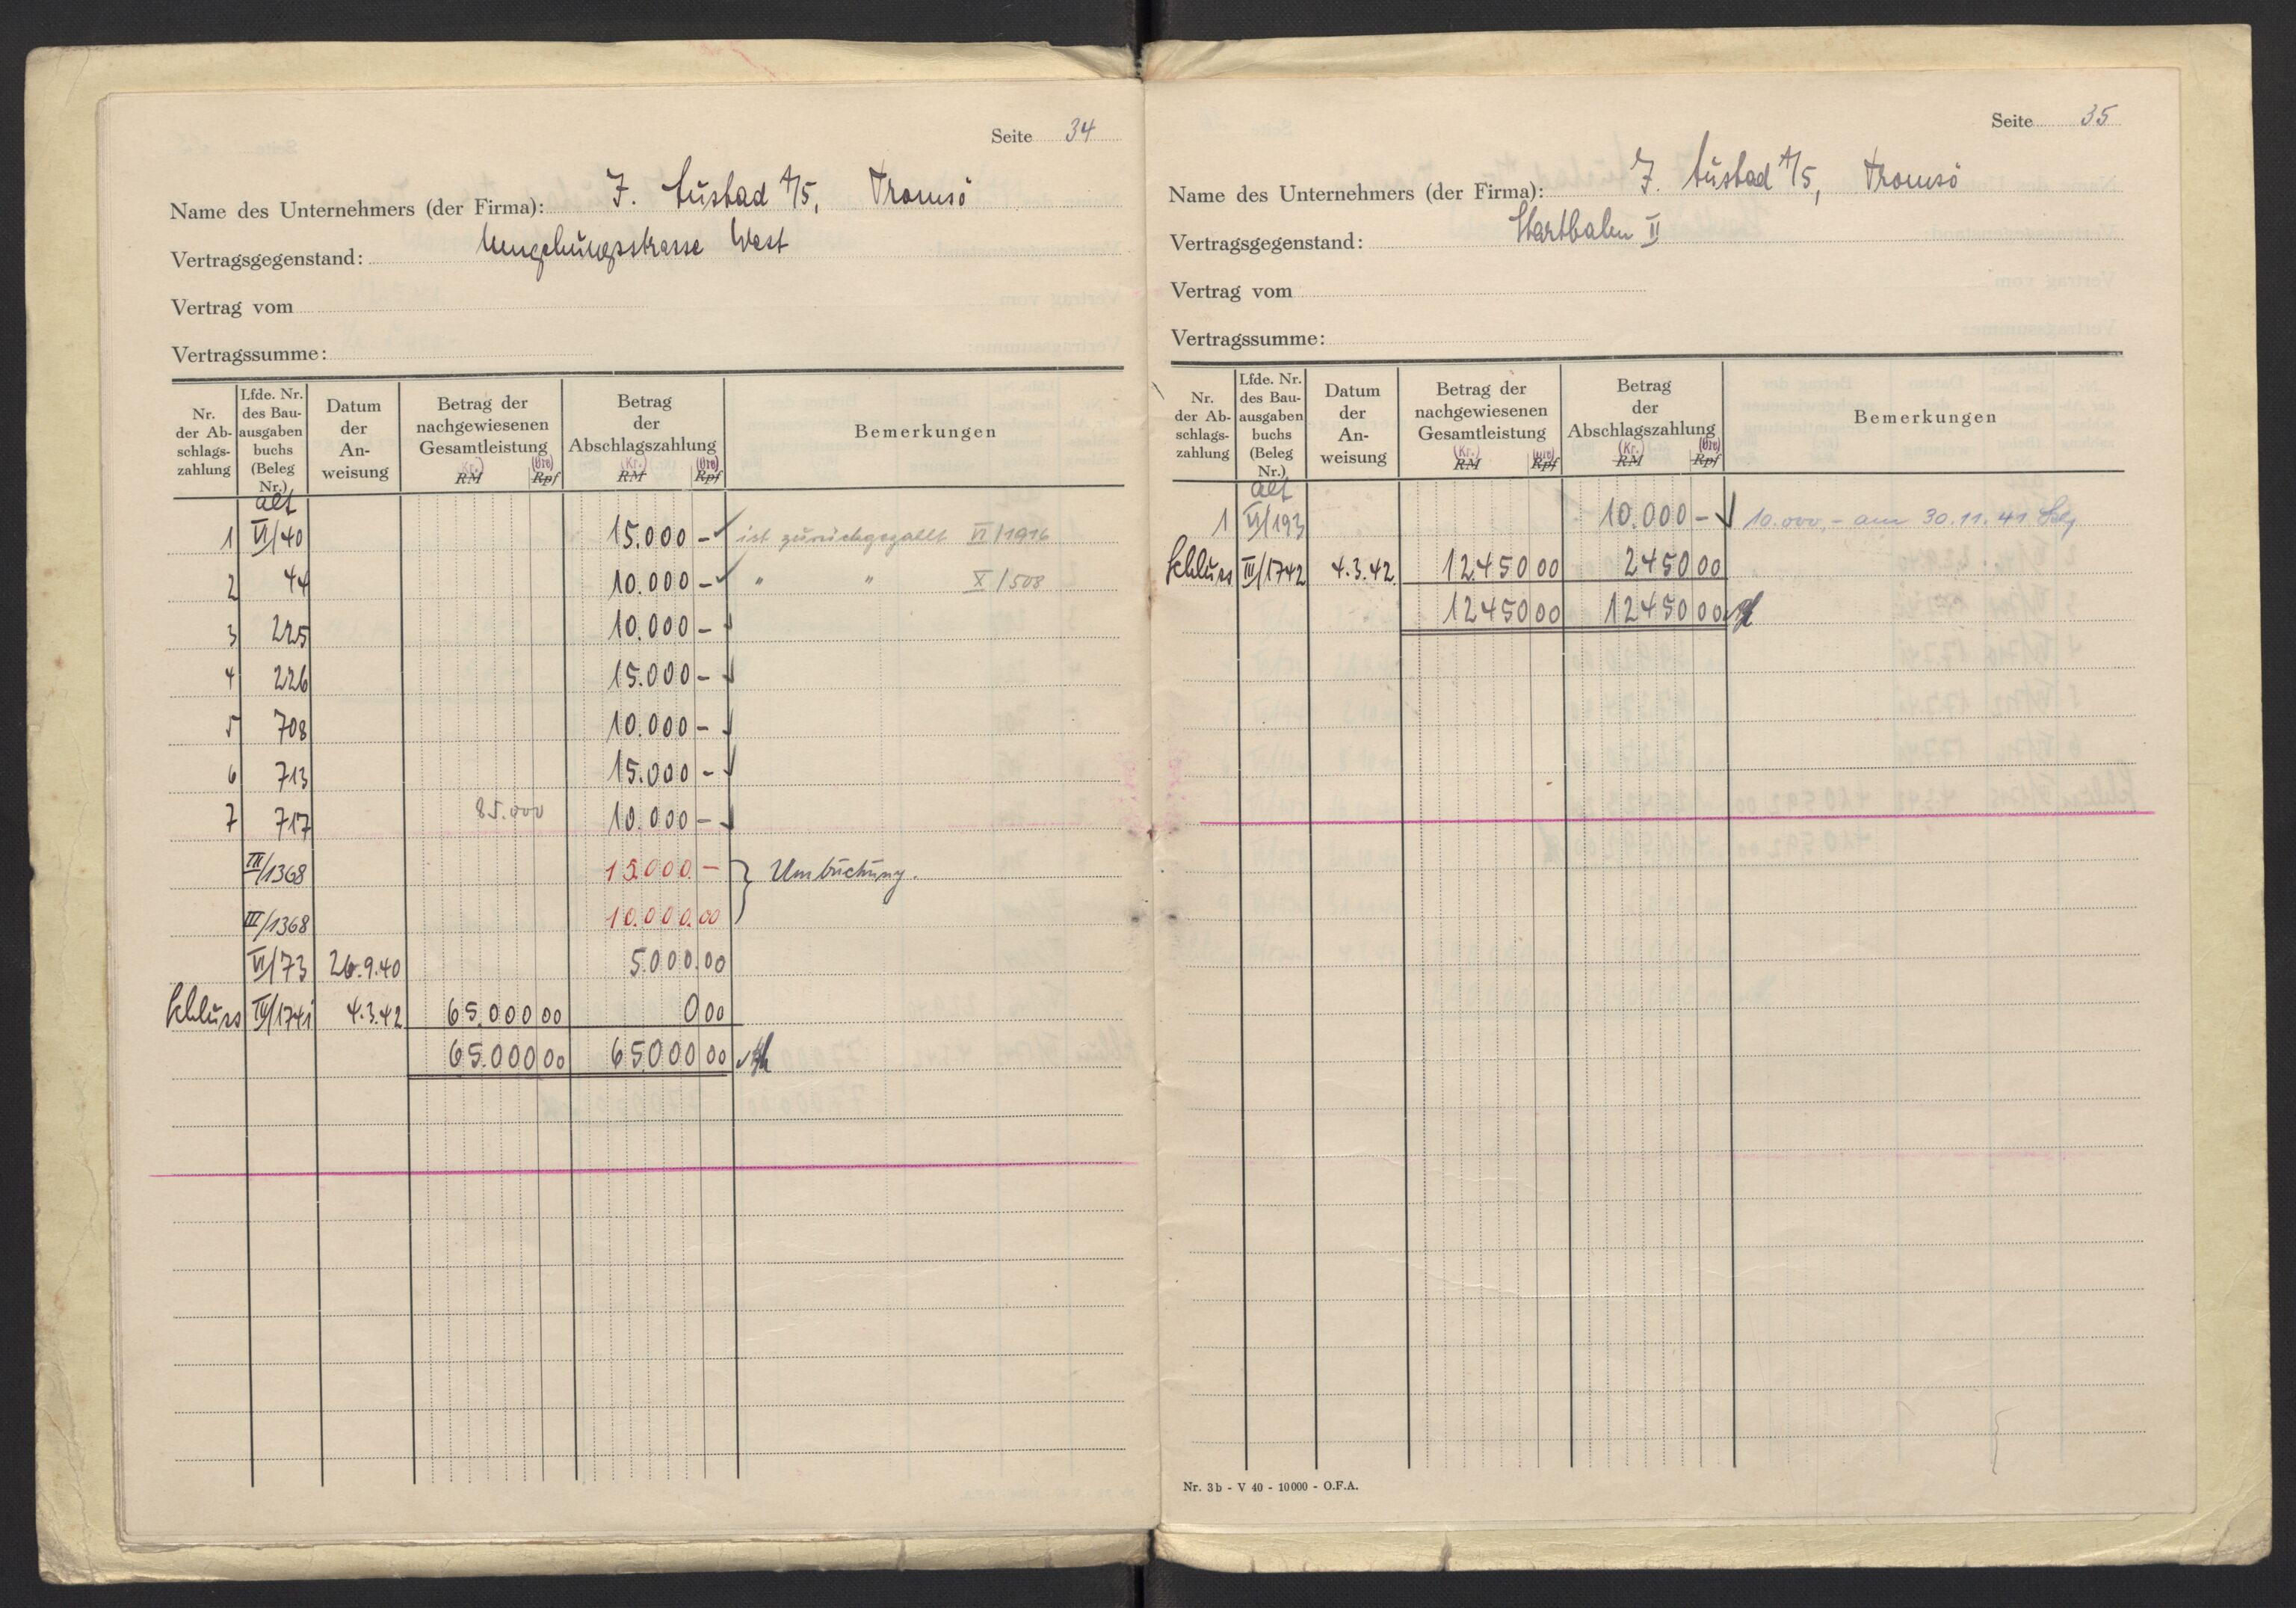 Seite 34
Name des Unternehmers (der Firma): J. Lustad A/S, Tromsö
Vertragsgegenstand: Umgehungsstrasse West
Vertrag vom
Vertragssumme:
Nr. der Ab-schlags-zahlung | Lfde. Nr. des Bau-ausgaben buchs (Beleg Nr.) | Datum der An-weisung | Betrag der nachgewiesenen Gesamtleistung (Kr.) RM (Öre) Rpf | Betrag der Abschlagszahlung (Kr.) RM (Öre) Rpf | Bemerkungen
alt
1 VI/40 15.000 - ist zurückgezahlt VI/1916
2 44 10.000 - " " X/508
3 225 10.000 -
4 226 15.000 -
5 708 10.000 -
6 713 15.000 -
7 717 85.000 10.000 -
III/1368 15.000 - } Umbuchung.
III/1368 10.000.00
VI/73 26.9.40 5.000.00
Schluss III/1741 4.3.42 65.000 00 0 00
65.000 00 65000 00
Seite 35
Name des Unternehmers (der Firma): J. Lustad A/S, Tromsö
Vertragsgegenstand: Startbahn II
Vertrag vom
Vertragssumme:
Nr. der Ab-schlags-zahlung | Lfde. Nr. des Bau-ausgaben buchs (Beleg Nr.) | Datum der An-weisung | Betrag der nachgewiesenen Gesamtleistung (Kr.) RM (Öre) Rpf | Betrag der Abschlagszahlung (Kr.) RM (Öre) Rpf | Bemerkungen
alt
1 VI/193 10.000 - 10.000,- am 30.11.41
Schluss III/1742 4.3.42 12450 00 2450 00
12450 00 12450 00
Nr. 3b - V 40 - 10000 - O.F.A.